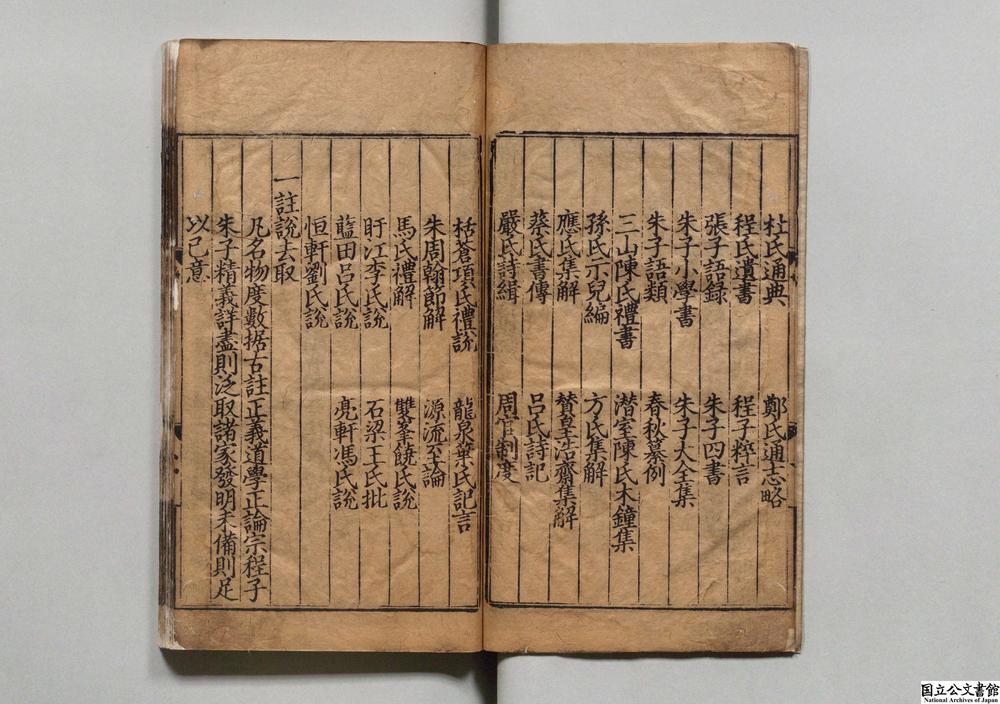 杜氏通典　鄭氏通志略
程氏遺書　程子粹言
張子語錄　朱子四書
朱子小學書　朱子大全集
朱子語類　春秋纂例
三山陳氏禮書　潛室陳氏木鐘集
孫氏示兒編　方氏集解
應氏集解　贊皇浩齋集解
蔡氏書傳　呂氏詩記
嚴氏詩緝　周官制度
栝蒼項氏禮說　龍泉葉氏記言
朱周翰節解　源流至論
馬氏禮解　雙峯饒氏說
盱江李氏說　石梁王氏批
藍田呂氏說　亮軒馮氏說
恒軒劉氏說
一註說去取
凡名物度數据古註正義道學正論宗程子
朱子精義詳盡則泛取諸家發明未備則足
以己意
国立公文書館
National Archives of Japan